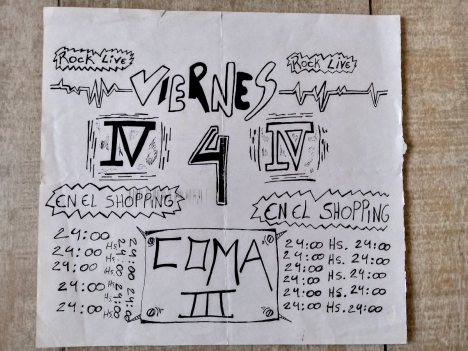 ROCK LIVE
ROCK LIVE
VIERNES
IV
4
IV
EN EL SHOPPING
EN EL SHOPPING
24:00
24:00 Hs. 24:00
24:00 Hs. 24:00
24:00 Hs. 24:00
24:00 Hs. 24:00
COMA
III
24:00 Hs. 24:00
24:00 Hs. 24:00
24:00 Hs. 24:00
24:00 Hs. 24:00
24:00 Hs. 24:00